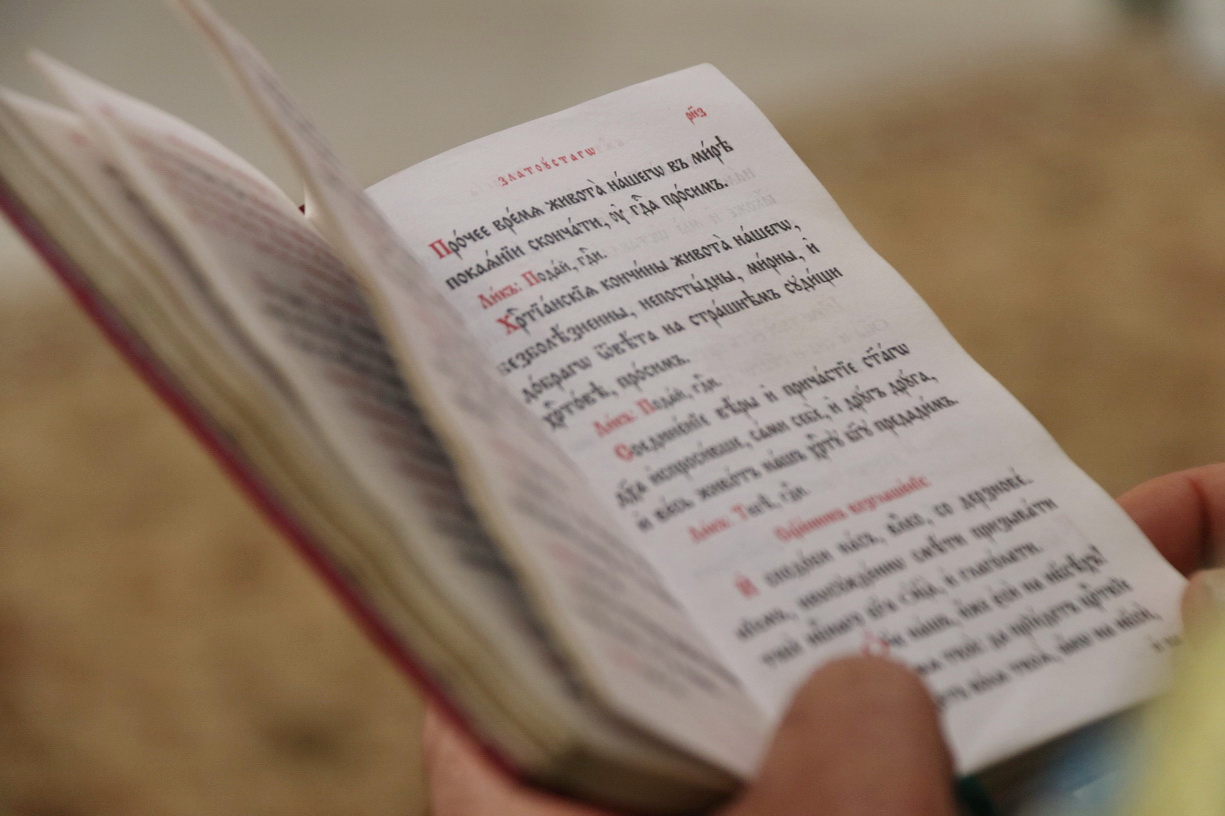 ЗЛАТОꙋ́СТАГѠ рн҃з
Про́чее вре́мѧ живота̀ на́шегѡ въ ми́рѣ
покаѧ́нїи сконча́ти, оу҆ гдⷭ҇а про́симъ.
Ли́къ: Пода́й, гдⷭ҇и.
Хрⷭ҇тїа́нскїѧ кончи́ны живота̀ на́шегѡ,
безболѣ́зненны, непосты́дны, ми́рны, и҆
до́брагѡ ѿвѣ́та на стра́шнѣмъ сꙋди́щи
хрⷭ҇то́вѣ, про́симъ.
Ли́къ: Пода́й, гдⷭ҇и.
Соедине́нїе вѣ́ры и҆ прича́стїе ст҃а́гѡ
дх҃а и҆спроси́вше, са́ми себѐ, и҆ дрꙋ́гъ дрꙋ́га,
и҆ ве́сь живо́тъ на́шъ хрⷭ҇тꙋ̀ бг҃ꙋ предади́мъ.
Ли́къ: Тебѣ̀, гдⷭ҇и.
возглаше́нїе:
И҆ сподо́би на́съ, влⷣко, со дерзнове́-
нїемъ, неѡсꙋжде́ннѡ смѣ́ти призыва́ти
тебѐ нбⷭ҇наго бг҃а ѻ҆ц҃а̀, и҆ глаго́лати:
на́шъ, и҆́же є҆сѝ на нб҃сѣ́хъ!
твоѐ: да прїи́детъ црⷭ҇твїе
во́лѧ твоѧ̀, ꙗ҆́кѡ на нб҃сѝ,